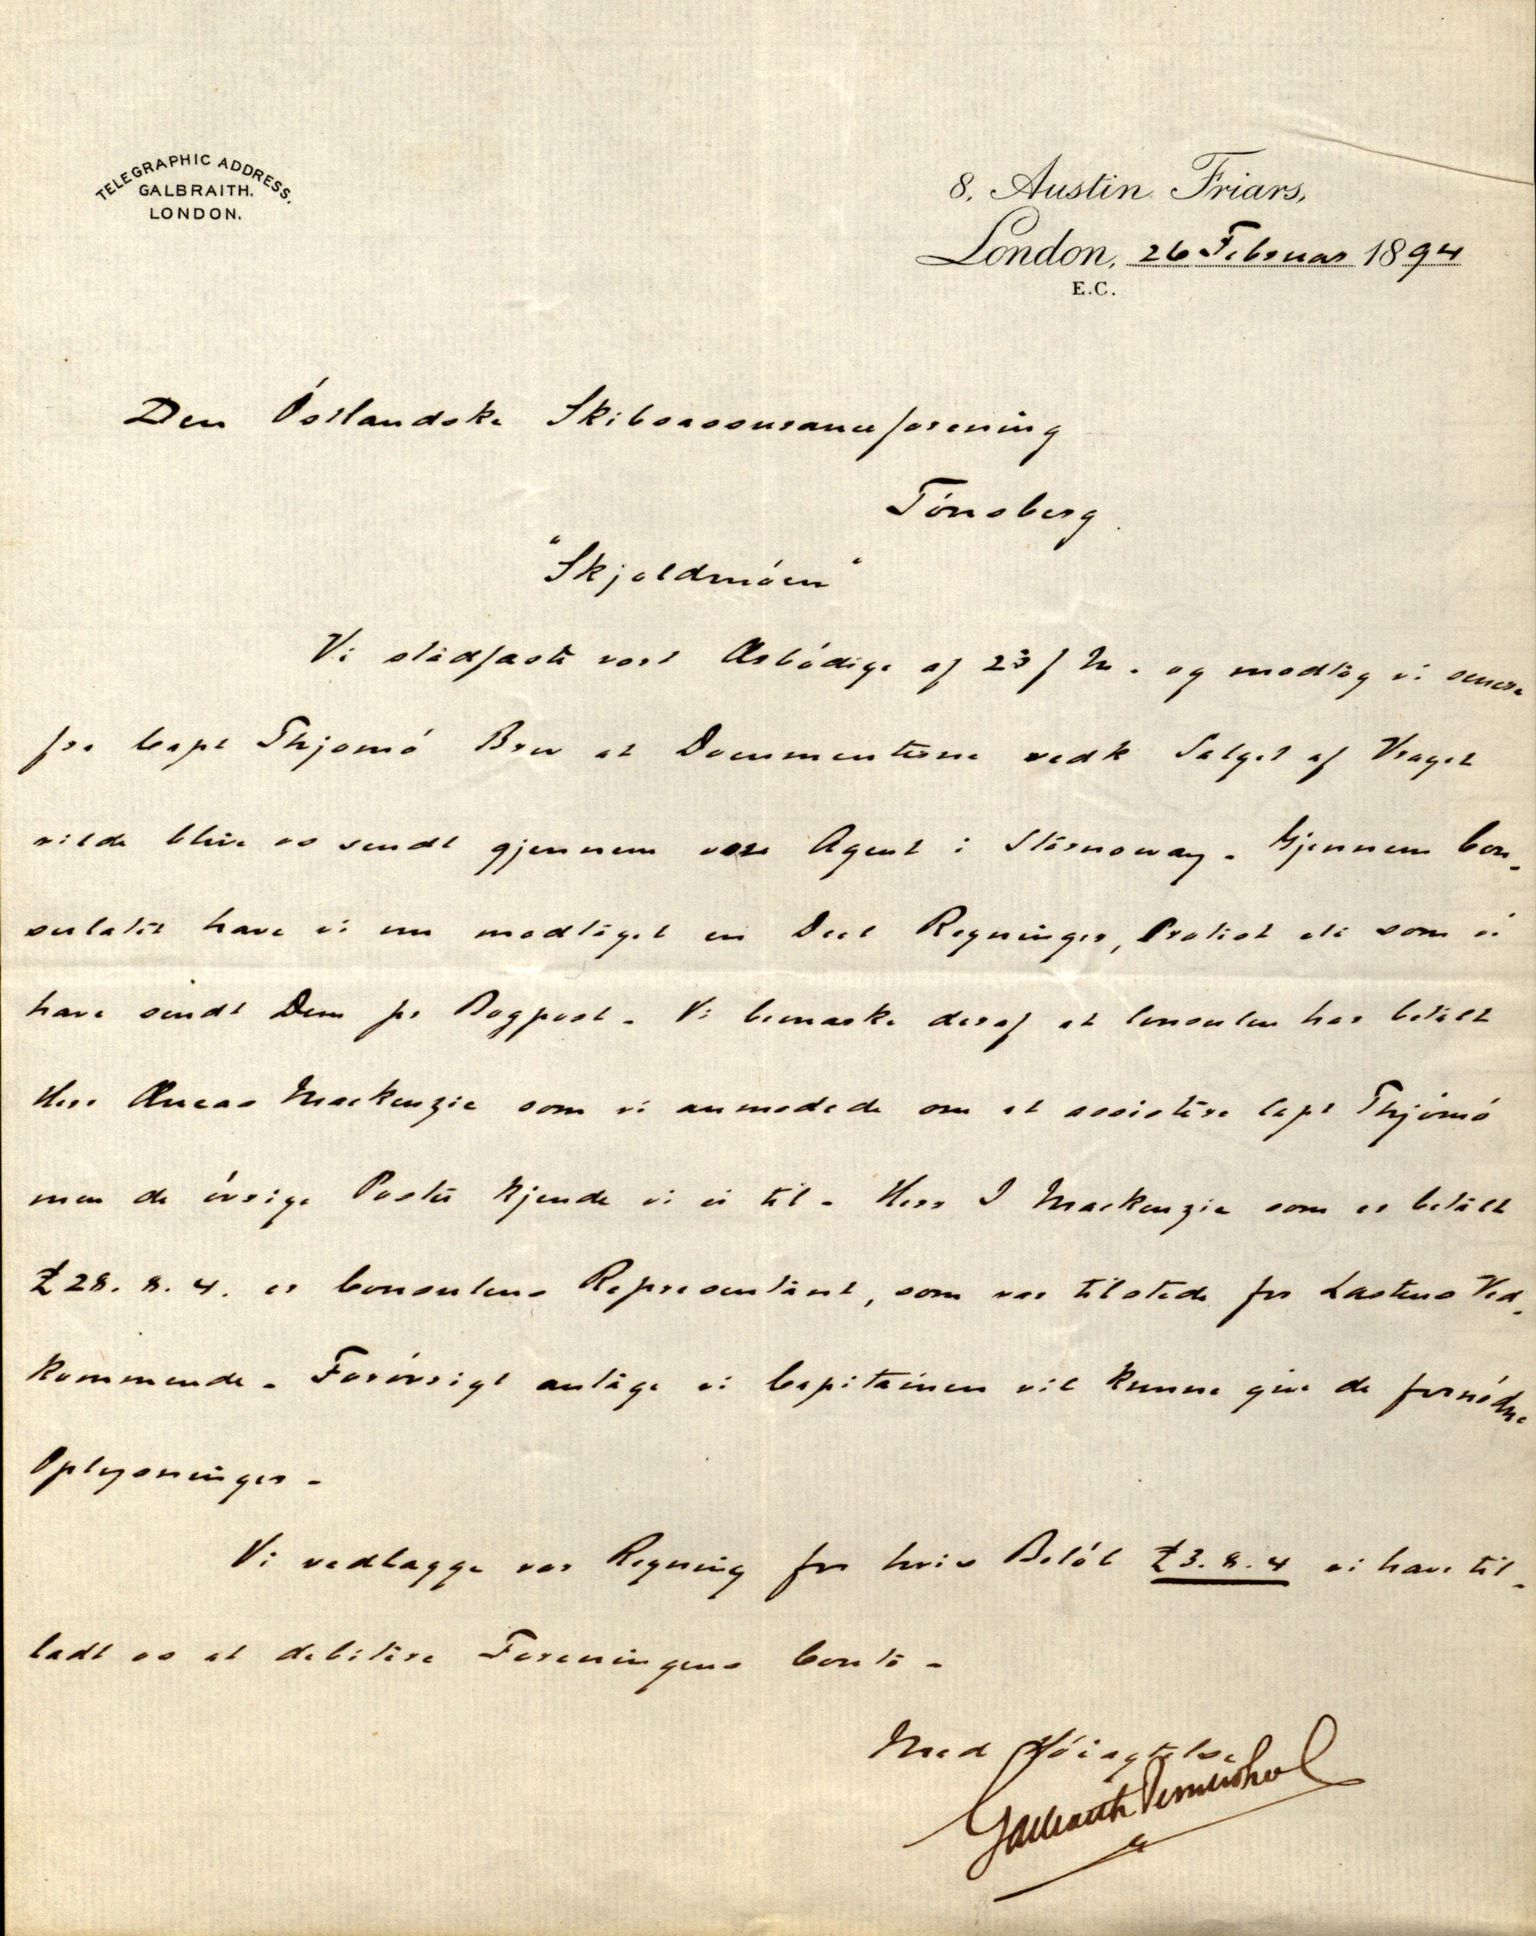 TELEGRAPHIC ADDRESS.
GALBRAITH.
LONDON.
8, Austin Friars,
London, 26 Februar 1894
E.C.
Den Östlandske Skibsassuranceforening
Tönsberg.
"Skjoldmöen"
Vi stadfæste vort Ærbödige af 23 f M. og modtog vi senere
fra Capt Thjömö Brev at Documenterne vedk Salget af Vraget
vilde blive os sendt gjennem vor Agent i Stornoway. Gjennem Con-
sulatet have vi nu modtaget en Deel Regninger, Protest etc som vi
have sendt Dem pr Bogpost. Vi bemærke deraf at Consulen har betalt
Herr Æneas Mackenzie som vi anmodede om at assistere Capt Thjömö
men de övrige Poster kjende vi ei til. Herr I Mackenzie som er betalt
£28. 8. 4. er Consulens Representant, som var tilstede for Lastens Ved-
kommende. Forövrigt antage vi Capitainen vil kunne give de fornödne
Oplysninger.
Vi vedlægge vor Regning for hvis Belöb £3. 8. 4 vi have til-
ladt os at debitere Foreningens Conto.
Med Höiagtelse
Galbraith Pembroke